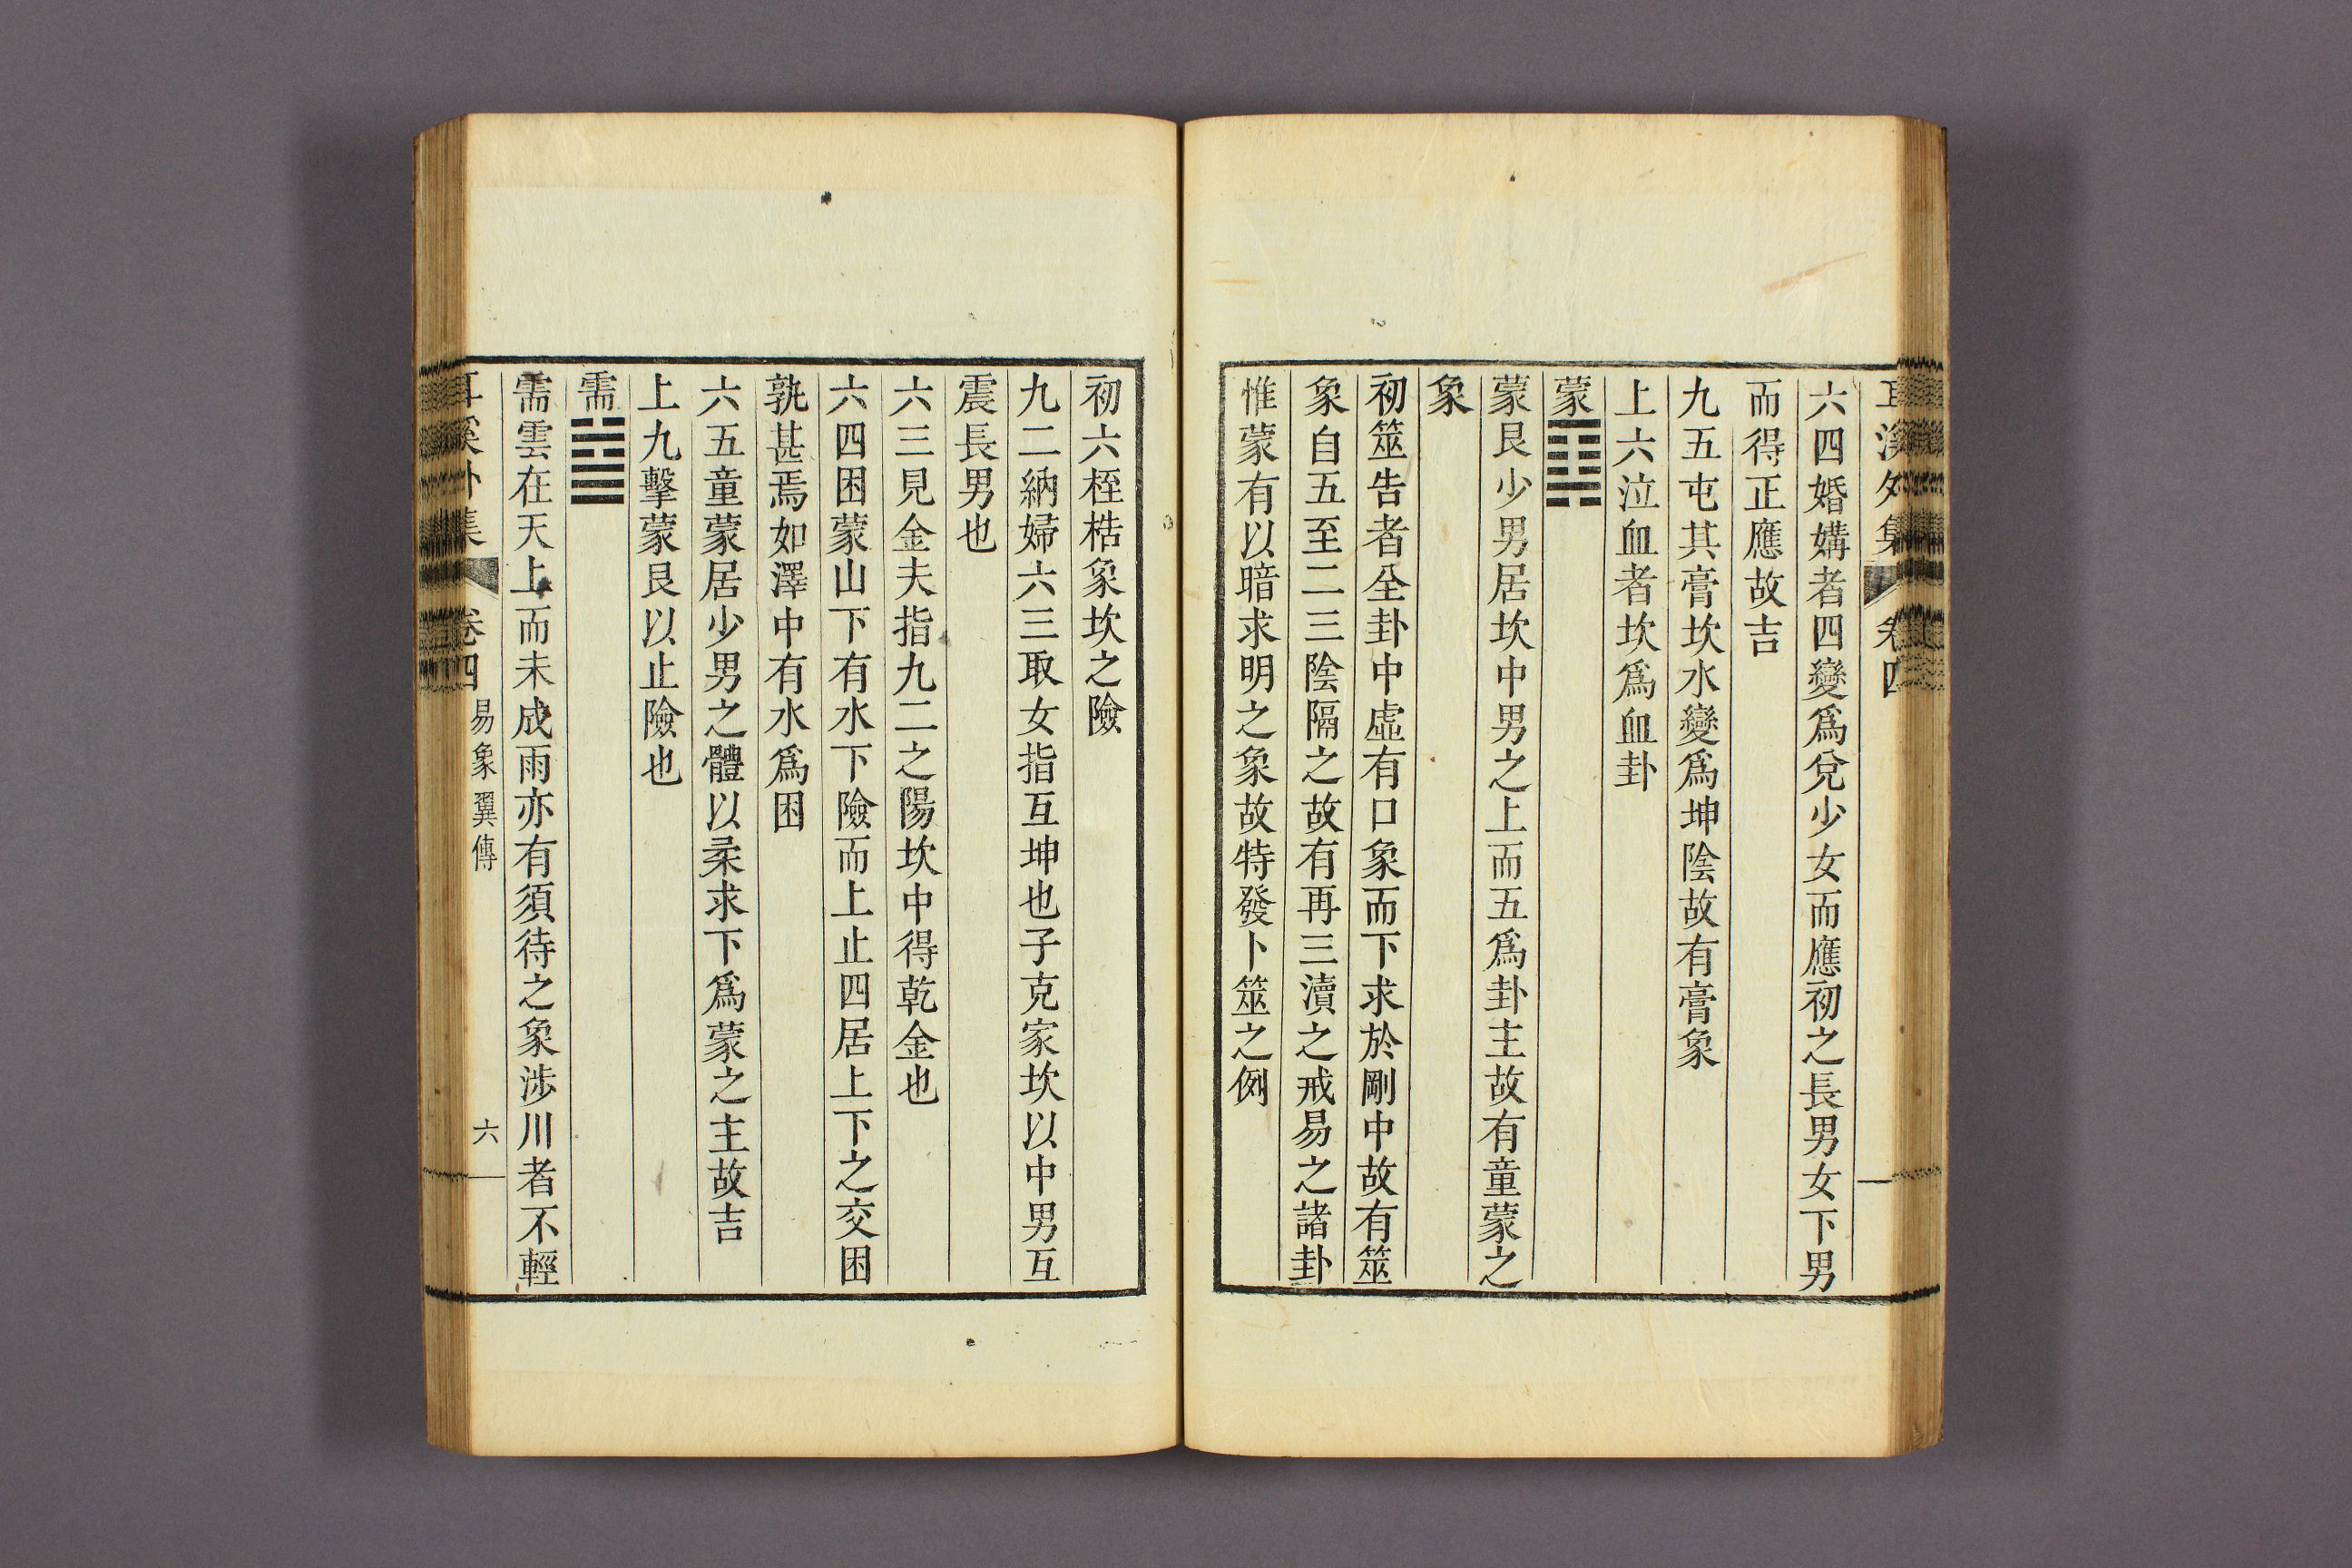 耳溪外集 卷四
六四婚媾者四變爲兌少女而應初之長男女下男
而得正應故吉
九五屯其膏坎水變爲坤陰故有膏象
上六泣血者坎爲血卦
蒙䷃
蒙艮少男居坎中男之上而五爲卦主故有童蒙之
象
初筮告者全卦中虛有口象而下求於剛中故有筮
象自五至二三陰隔之故有再三瀆之戒易之諸卦
惟蒙有以暗求明之象故特發卜筮之例
初六桎梏象坎之險
九二納婦六三取女指互坤也子克家坎以中男互
震長男也
六三見金夫指九二之陽坎中得乾金也
六四困蒙山下有水下險而上止四居上下之交困
孰甚焉如澤中有水爲困
六五童蒙居少男之體以柔求下爲蒙之主故吉
上九擊蒙艮以止險也
需䷄
需雲在天上而未成雨亦有須待之象涉川者不輕
耳溪外集 卷四 易象翼傳 六